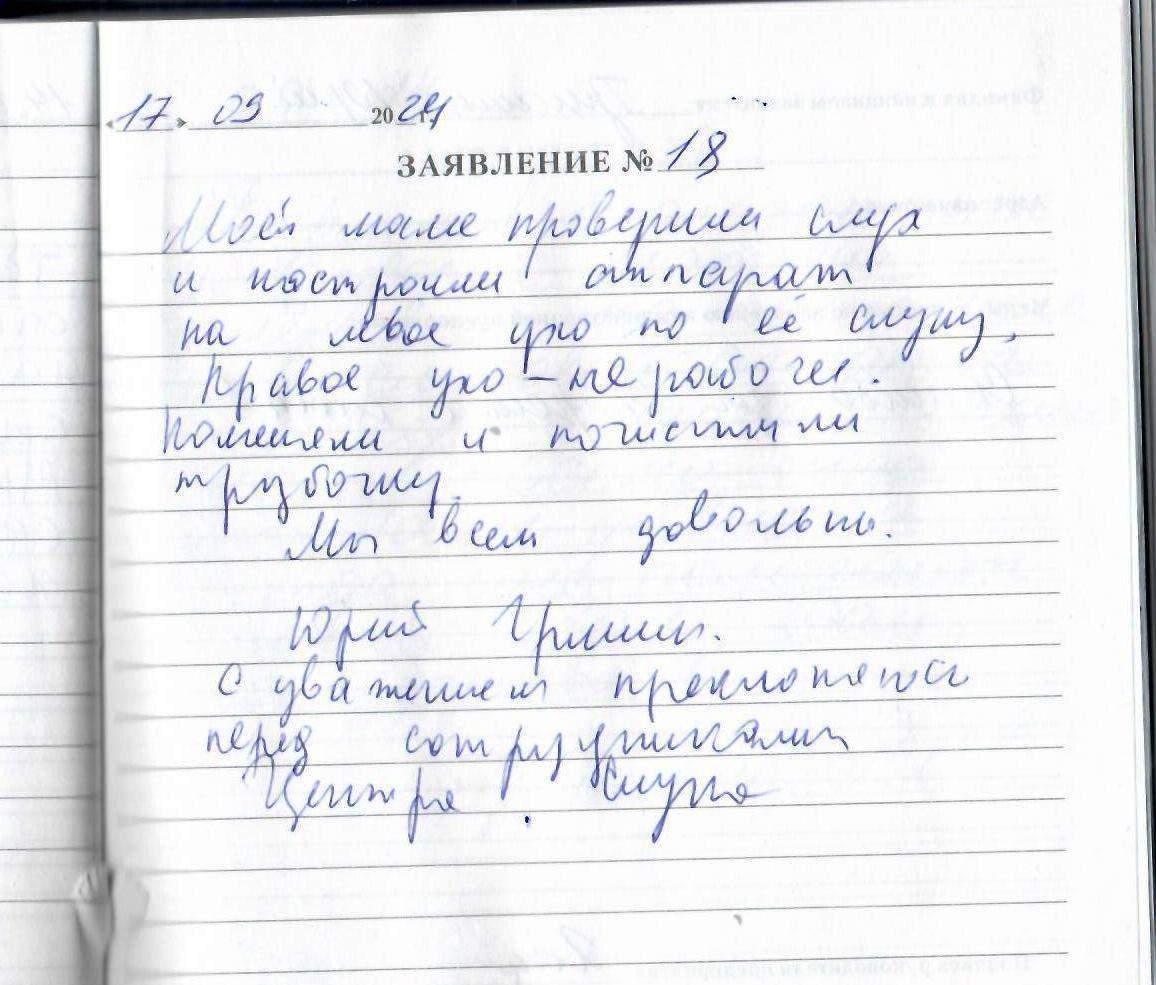 «17» 09 2021
ЗАЯВЛЕНИЕ № 18
Моей маме проверили слух
и настроили аппарат
на левое ухо по её слуху,
Правое ухо – не рабочее.
Поменяли и почистили
трубочку.
Мы всем довольны.
Юрий
С уважением преклоняюсь
перед сотрудниками
Центра Слуха